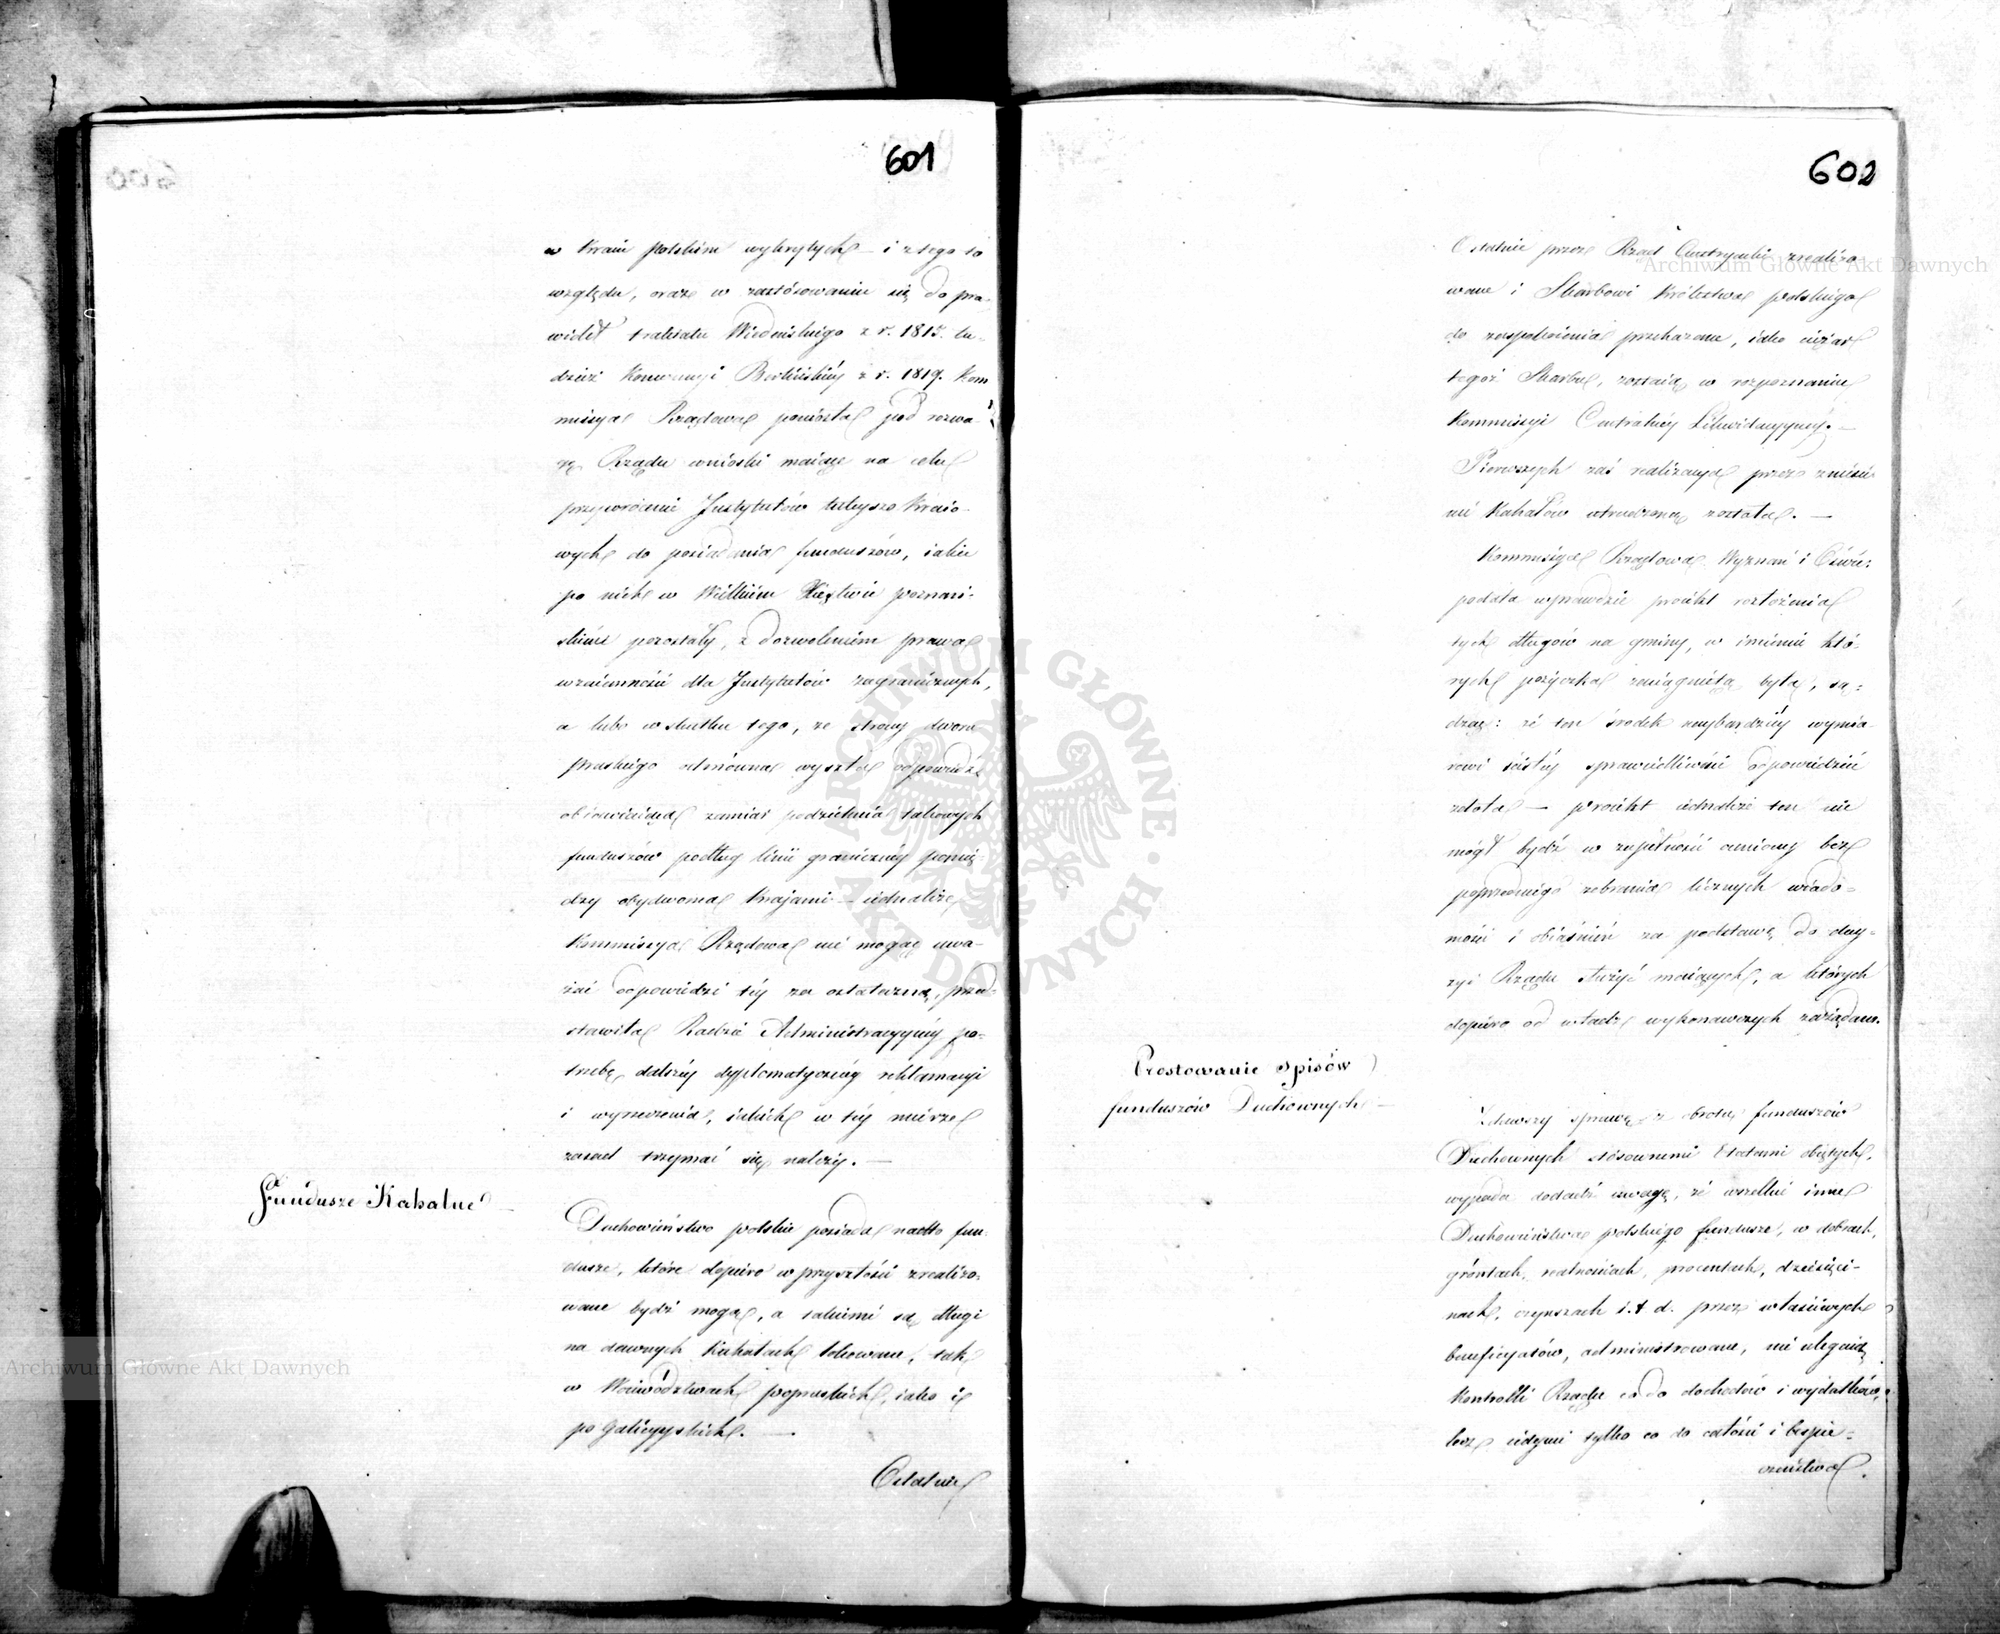 601
w Kraiu polskim wykrytych — i z tego to
względu, oraz w zastósowaniu się do pra-
wideł traktatu Wiedeńskiego z r. 1815. tu-
dzież Konwencyi Berlińskiéy z r. 1819. Kom
missya Rządowa poniosła pod rozwa-
gę Rządu wnioski maiące na celu
przywrócenie Instytutów tuteyszo Kraio-
wych do posiadania funduszów, iakie
po nich w Wielkiém Xięstwie poznań-
skiém pozostały, z dozwoleniem prawa
wzaiemności dla Instytutów zagranicznych,
a lubo w skutku tego, ze strony dworu
pruskiego odmówna wyszła odpowiedź
obiawiaiąca zamiar podzielenia takowych
funduszów podług linii granicznéy pomię-
dzy obydwoma Krajami — iednakże
Kommissya Rządowa nie mogąc uwa-
żać odpowiedzi téy za ostateczną, przed-
stawiła Radzie Administracyynéy po-
trzebę dalszéy dyplomatycznéy reklamacyi
i wyrzeczenia, iakich w téy mierze
zasad trzymać się należy. —
Fundusze Kahalne —
Duchowieństwo polskie posiada nadto fun-
dusze, które dopiero w przyszłości zrealizo-
wane bydź mogą, a takiemi są długi
na dawnych Kahałach lokowane, tak
w Woiewództwach popruskich, iako i
po Galicyyskich. —
Ostatnie
602
Ostatnie przez Rząd Austryacki zrealizo
wane i Skarbowi Królestwa polskiego
do zaspokoienia przekazane, iako ciężar
tegoż Skarbu, zostaią w rozpoznaniu
Kommissyi Centralnéy Likwidacyynéy. —
Pierwszych zaś realizacya przez zniesie
nie Kahałów utrudzoną została. —
Kommissya Rządowa Wyznań i Oświe:
podała wprawdzie proiekt rozłożenia
tych długów na gminy, w imieniu któ-
rych pożyczka zaciągniętą była, są-
dząc: że ten środek naybardziéy wymia-
rowi ścisłéy sprawiedliwości odpowiedzieć
zdoła — proiekt iednakże ten nie
mógł bydź w zupełności oceniony bez
poprzedniego zebrania licznych wiado-
mości i obiaśnień za podstawę do decy-
zyi Rządu służyć maiących, a których
dopiero od władz wykonawczych zażądano.
Prostowanie spisów
funduszów Duchownych —
Zdawszy sprawę z obrotu funduszów
Duchownych stósownemi Etatami obiętych,
wypada dodadź uwagę, że wszelkie inne
Duchowieństwa polskiego fundusze, w dobrach,
gróntach, realnościach, procentach, dziesięci-
nach, czynszach i. t. d. przez właściwych
beneficyatów, administrowane, nie ulegaią
Kontrolli Rządu co do dochodów i wydatków,
lecz iedynie tylko co do całości i bespie-
czeństwa.
Archiwum Główne Akt Dawnych
Archiwum Główne Akt Dawnych
ARCHIWUM GŁÓWNE AKT DAWNYCH